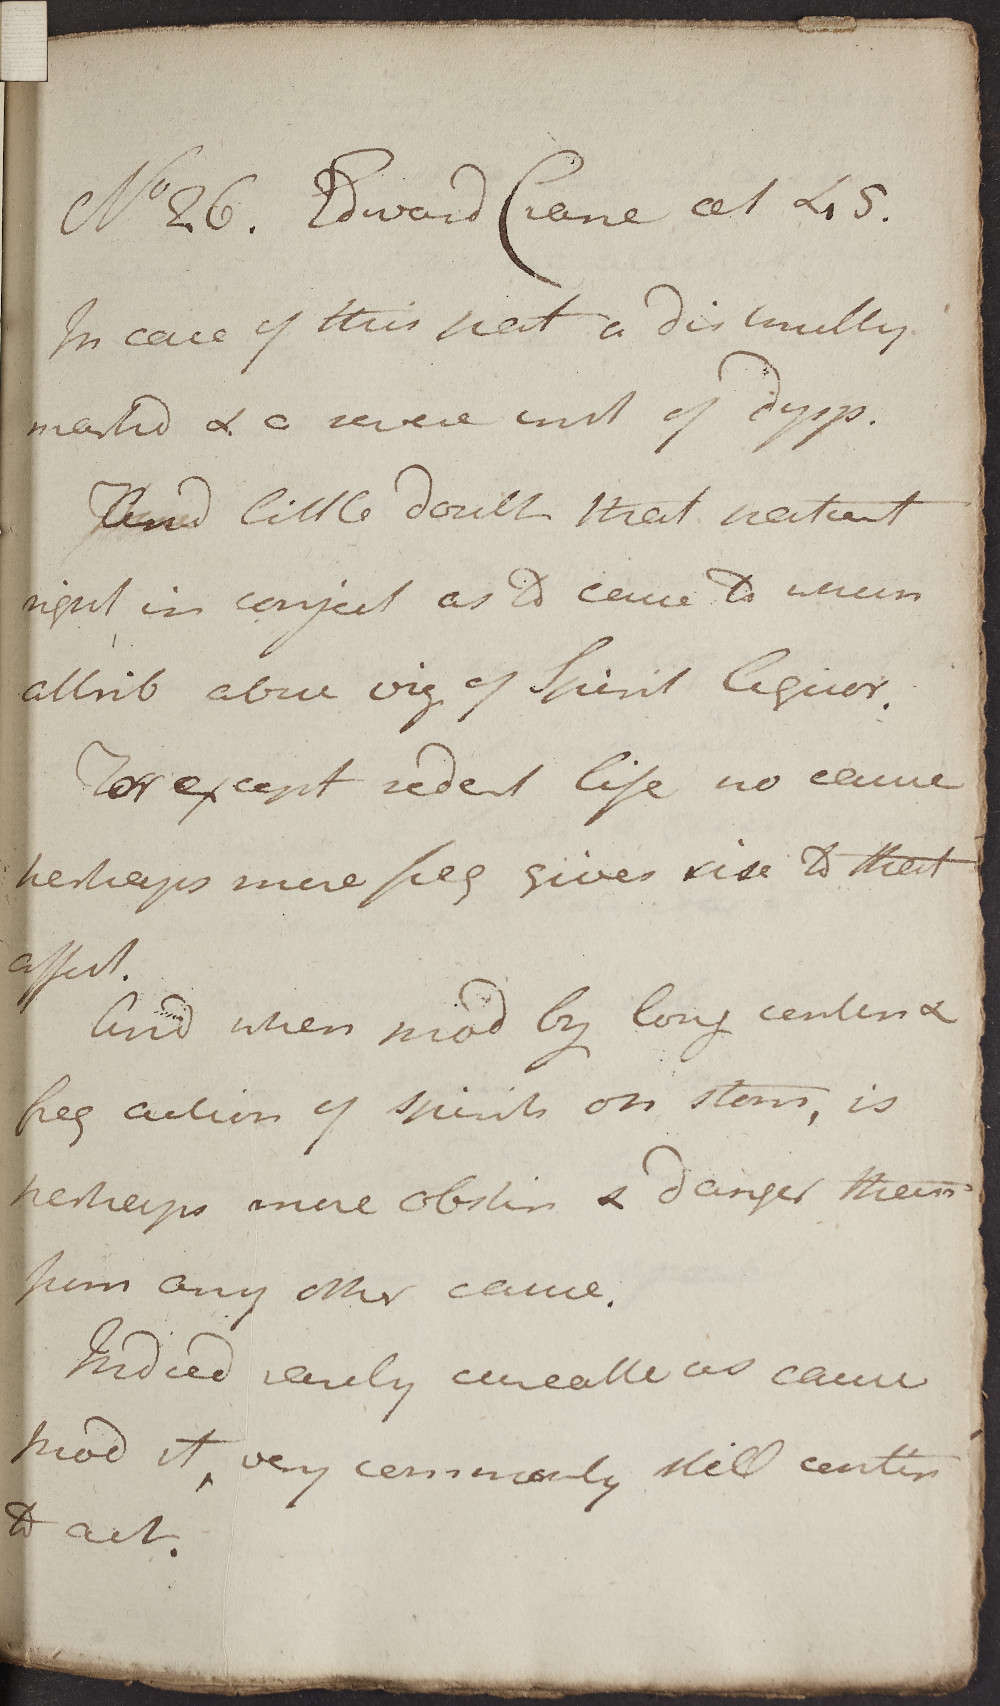 No 26. Edward Crane æt 45.
In case of this pat a distinctly
marked & a severe inst of dysp.
And little doubt that patient
right in conject as to cause to whch
attrib above viz of Spirit liquor.
For except sedent life no cause
perhaps more freq gives rise to that
affect.
And when prod by long contin &
freq action of spirits on stom, is
perhaps more obstin & danger than
from any other cause.
Indeed rarely cureable as cause
prod it, very commonly still contin
to act.